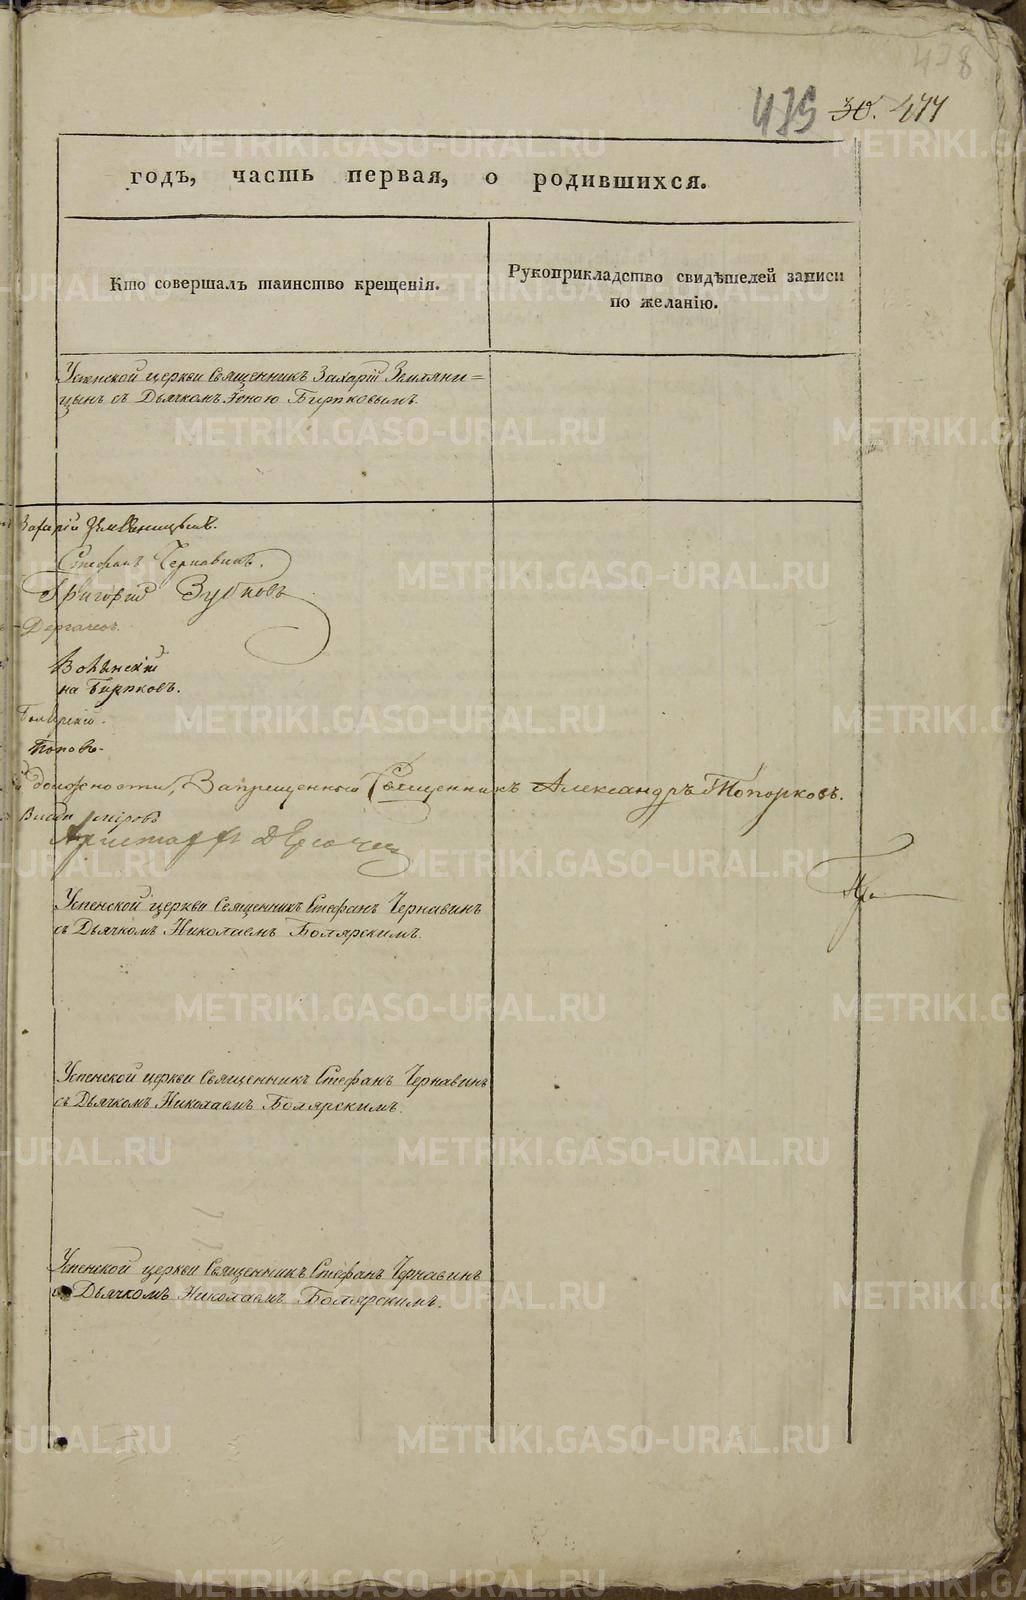 478
479 30. 477
годъ, часть первая, о родившихся.
Кто совершалъ таинство крещенія.
Рукоприкладство свидѣтелей записи
по желанію.
Успенской церкви Священникъ Захарій Земляни=
цынъ съ Дьячкомъ Іоною Бирюковымъ.
Захарій Земляницынъ.
Стефанъ Чернавинъ.
Григорій Зубковъ
Дергачевъ.
Волынскій
на Бирюковъ.
Болярскій.
Поповъ.
должности, Запрещенный Священникъ Александръ Топорковъ.
Владиміровъ
Аристархъ
Успенской церкви Священникъ Стефанъ Чернавинъ
съ Дьячкомъ Николаемъ Болярскимъ.
Успенской церкви Священникъ Стефанъ Чернавинъ
съ Дьячкомъ Николаемъ Болярскимъ.
Успенской церкви Священникъ Стефанъ Чернавинъ
съ Дьячкомъ Николаемъ Болярскимъ.
METRIKI.GASO-URAL.RU